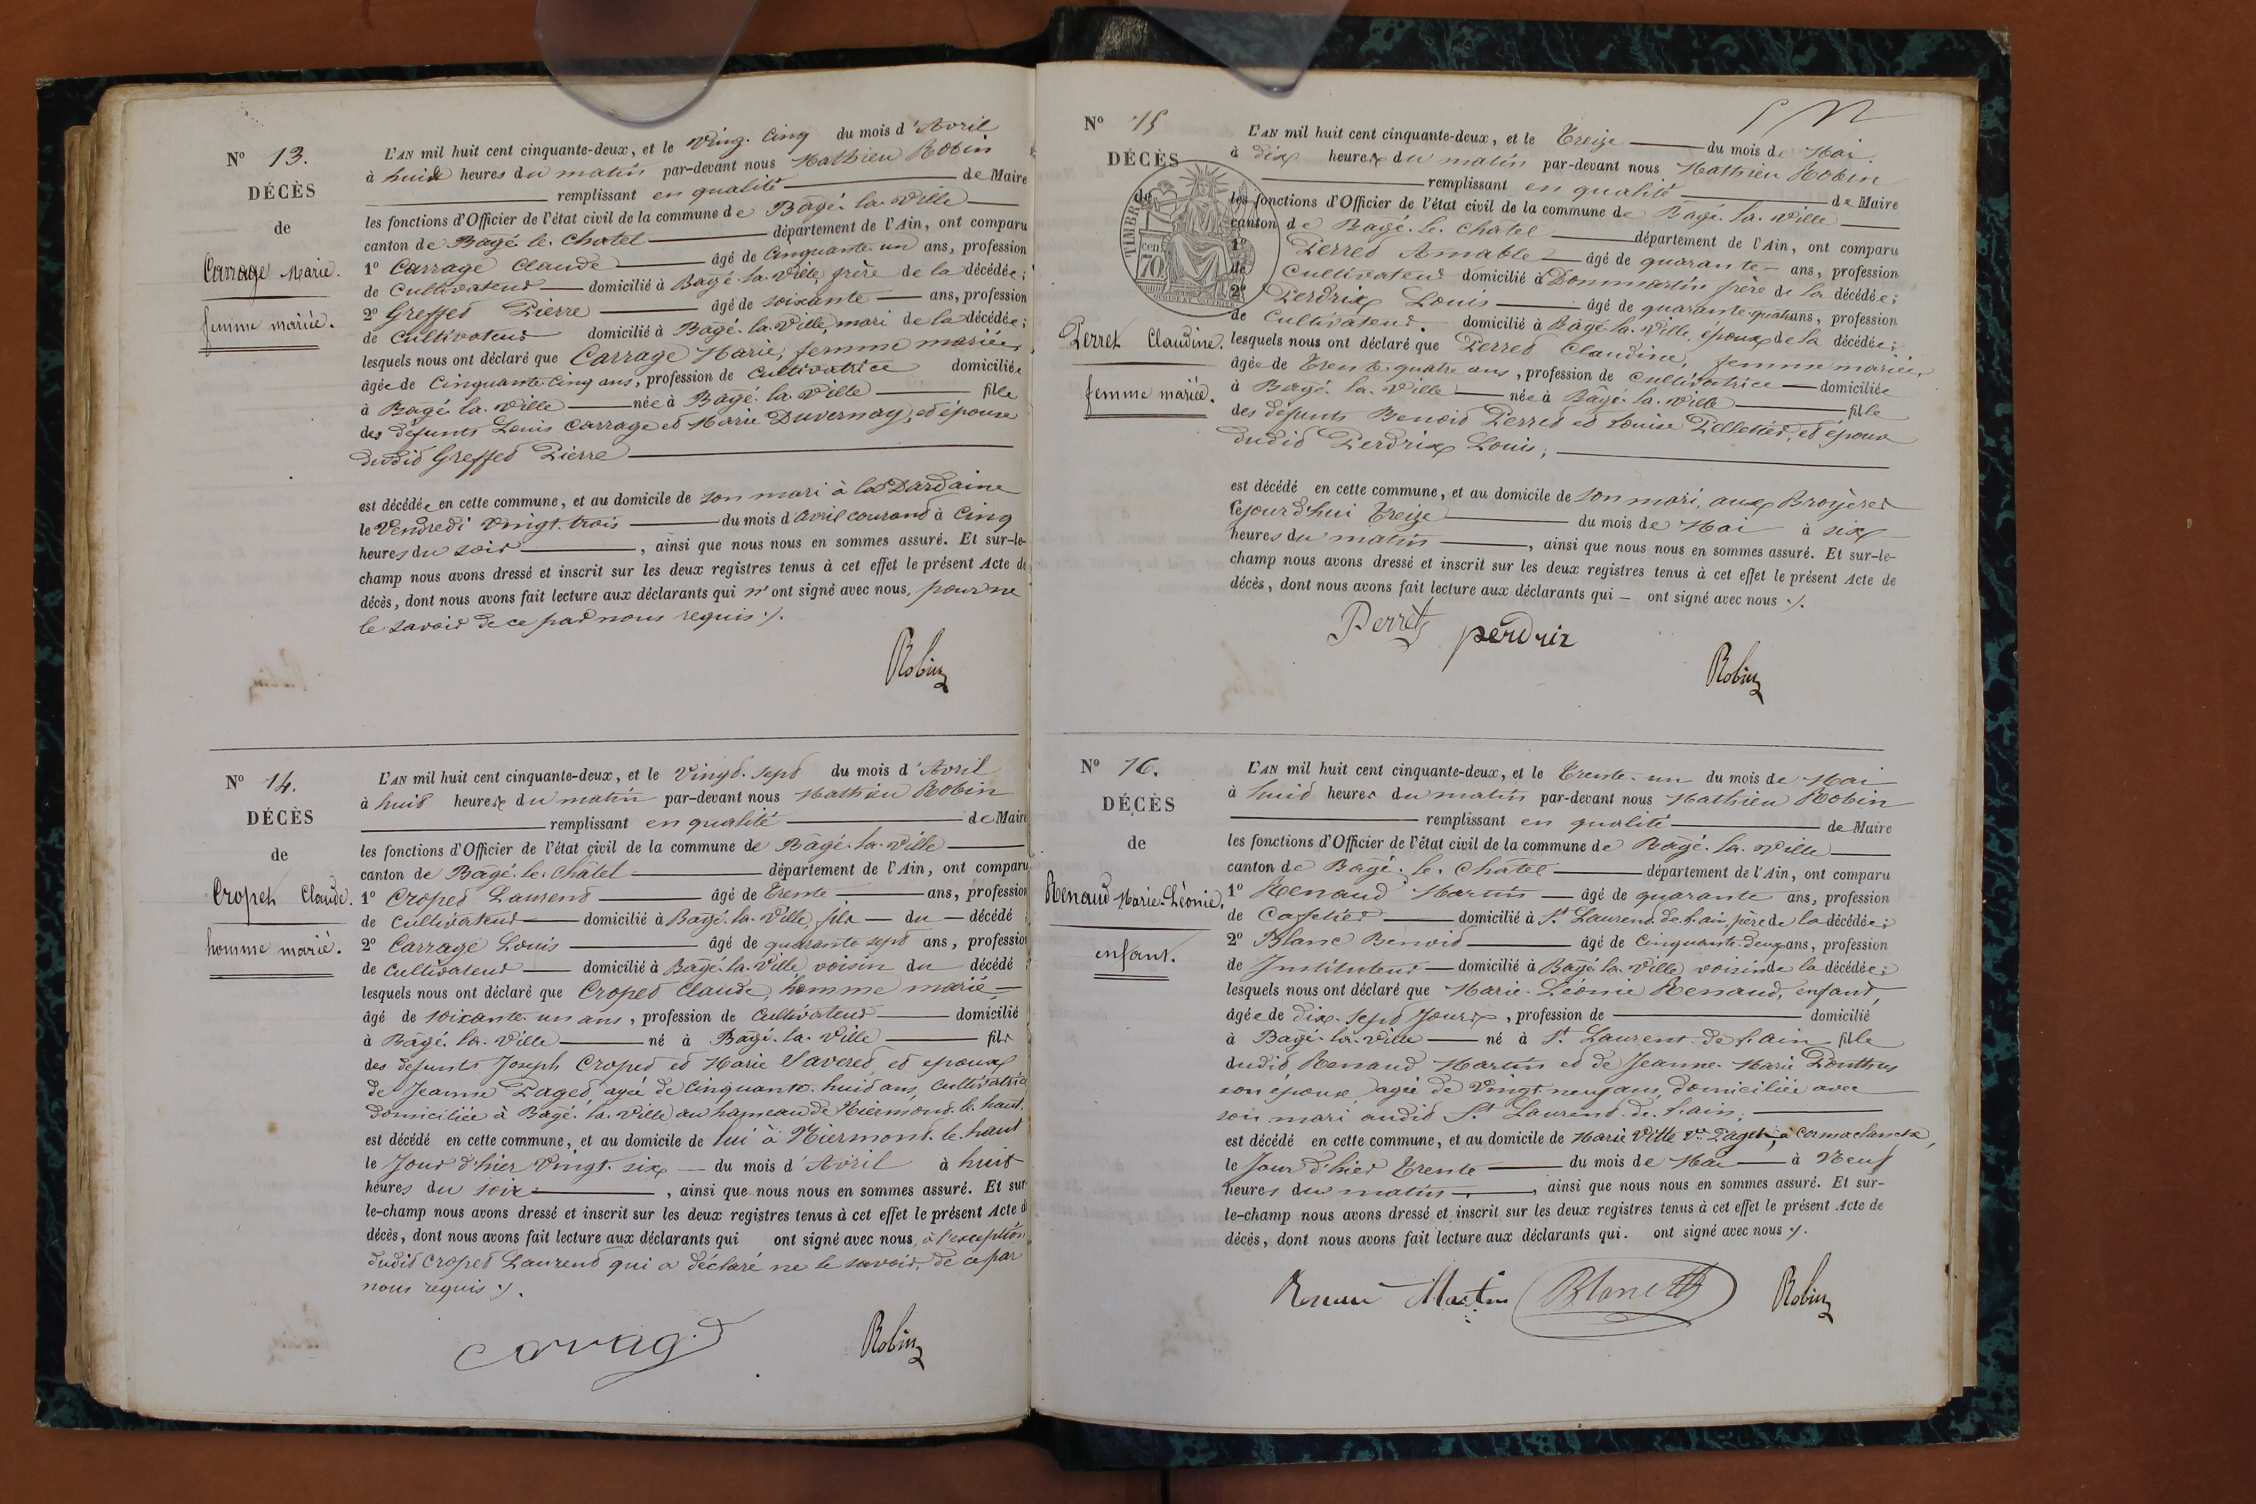 N° 13.
DÉCÈS
de
Carrage Marie.
femme mariée.
L'AN mil huit cent cinquante-deux, et le Vingt. Cinq du mois d'Avril
à huit heures du matin par-devant nous Mathieu Robin
remplissant en qualité de Maire
les fonctions d'Officier de l'état civil de la commune de Bagé. la. Ville
canton de Bagé. le. Chatel département de l'Ain, ont comparu
1° Carrage Claude âgé de Cinquante un ans, profession
de Cultivateur domicilié à Bagé. la. Ville, frère de la décédée;
2° Greffet Pierre âgé de soixante ans, profession
de Cultivateur domicilié à Bagé. la. Ville, mari de la décédée;
lesquels nous ont déclaré que Carrage Marie, femme mariée,
âgée de Cinquante-Cinq ans, profession de Cultivatrice domiciliée
à Bagé la. Ville née à Bagé. la. Ville fille
des défunts Louis Carrage et Marie Duvernay, et épouse
dudit Greffet Pierre
est décédée en cette commune, et au domicile de son mari à la Dardaine
le Vendredi vingt. trois du mois d'Avril courant à Cinq
heures du soir, ainsi que nous nous en sommes assuré. Et sur-le-
champ nous avons dressé et inscrit sur les deux registres tenus à cet effet le présent Acte de
décès, dont nous avons fait lecture aux déclarants qui n'ont signé avec nous, pour ne
le savoir de ce par nous requis ./.
Robin
N° 14.
DÉCÈS
de
Cropet Claude.
homme marié.
L'AN mil huit cent cinquante-deux, et le Vingt. sept du mois d'Avril
à huit heures du matin par-devant nous Mathieu Robin
remplissant en qualité de Maire
les fonctions d'Officier de l'état civil de la commune de Bagé. la. Ville
canton de Bagé. le. Châtel département de l'Ain, ont comparu
1° Cropet Laurent âgé de Trente ans, profession
de Cultivateur domicilié à Bagé. la. Ville, fils du décédé
2° Carrage Louis âgé de quarante sept ans, profession
de Cultivateur domicilié à Bagé. la. Ville, voisin du décédé
lesquels nous ont déclaré que Cropet Claude, homme marié
âgé de soixante. un ans, profession de Cultivateur domicilié
à Bagé. la. Ville né à Bagé. la. Ville fils
des défunts Joseph Cropet et Marie Saveret, et époux
de Jeanne Paget, agée de Cinquante. huit ans, Cultivatrice
domiciliée à Bagé. la. Ville au hameau de Niermont. le. haut.
est décédé en cette commune, et au domicile de lui à Niermont. le. haut
le Jour d'hier Vingt. six du mois d'Avril à huit
heures du soir, ainsi que nous nous en sommes assuré. Et sur
le-champ nous avons dressé et inscrit sur les deux registres tenus à cet effet le présent Acte d
décès, dont nous avons fait lecture aux déclarants qui ont signé avec nous, à l'exception
dudit Cropet Laurent qui a déclaré ne le savoir, de ce par
nous requis ./.
Carrage
Robin
N° 15
DÉCÈS
de
TIMBRE
cent
70
Perret Claudine.
femme mariée.
L'AN mil huit cent cinquante-deux, et le Treize du mois de Mai.
à dix heures du matin par-devant nous Mathieu Robin
remplissant en qualité de Maire
les fonctions d'Officier de l'état civil de la commune de Bagé. la. Ville
canton de Bagé. le. châtel département de l'Ain, ont comparu
1° Perret Amable âgé de quarante ans, profession
de Cultivateur domicilié à Dommartin frère de la décédée;
2° Perdrix Louis âgé de quarante. quatre ans, profession
de Cultivateur. domicilié à Bagé. la. Ville, époux de la décédée;
lesquels nous ont déclaré que Perret Claudine, femme mariée,
âgée de Trente. quatre ans, profession de Cultivatrice domiciliée
à Bagé. la. Ville née à Bagé. la. Ville fille
des défunts Benoit Perret et Louise Pelletier, et épouse
dudit Perdrix Louis;
est décédé en cette commune, et au domicile de son mari, aux Broyères
Cejourd'hui Treize du mois de Mai à six
heures du matin, ainsi que nous nous en sommes assuré. Et sur-le-
champ nous avons dressé et inscrit sur les deux registres tenus à cet effet le présent Acte de
décès, dont nous avons fait lecture aux déclarants qui ont signé avec nous ./.
Perret perdrix
Robin
N° 16.
DÉCÈS
de
Renaud Marie-Léonie.
enfant.
L'AN mil huit cent cinquante-deux, et le Trente. un du mois de Mai
à huit heures du matin par-devant nous Mathieu Robin
remplissant en qualité de Maire
les fonctions d'Officier de l'état civil de la commune de Bagé. la. Ville
canton de Bagé. le. Châtel département de l'Ain, ont comparu
1° Renaud Martin âgé de quarante ans, profession
de Cafetier domicilié à St. Laurent. de. l'ain, père de la décédée;
2° Blanc Benoit âgé de Cinquante. deux ans, profession
de Instituteur domicilié à Bagé. la. Ville, voisin de la décédée;
lesquels nous ont déclaré que Marie. Léonie Renaud, enfant,
âgée de dix. sept Jours, profession de domicilié
à Bagé. la. Ville né à St. Laurent. de. l'ain fille
dudit Renaud Martin et de Jeanne. Marie Ponthus
son épouse, agée de Vingt neuf ans, domiciliée avec
son mari audit St. Laurent. de. l'ain;
est décédé en cette commune, et au domicile de Marie Vitte Vve. Paget, à Cormaclanche,
le Jour d'hier Trente du mois de Mai à Neuf
heures du matin, ainsi que nous nous en sommes assuré. Et sur-
le-champ nous avons dressé et inscrit sur les deux registres tenus à cet effet le présent Acte de
décès, dont nous avons fait lecture aux déclarants qui. ont signé avec nous ./.
Renau Martin Blanc Robin